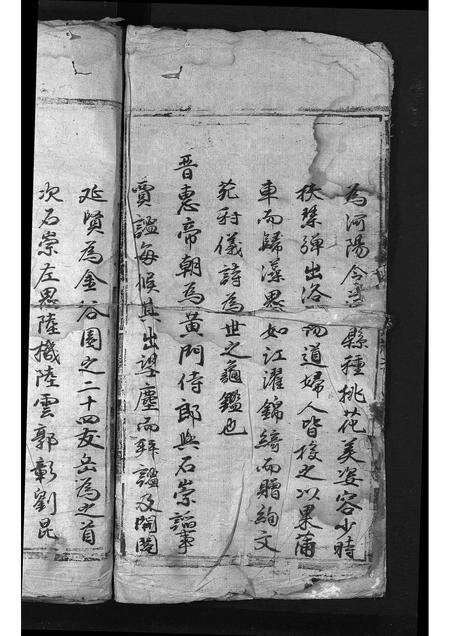 為河陽令 縣種桃花美姿容少時
挾彈出洛陽道婦人皆投之以果滿
車而歸藻思如江濯錦綺而贈絢文
苑對儀詩為世之龜鑑也
晋惠帝朝為黃門侍郎與石崇謟事
賈謐每候其出望塵而拜謐及開閤
延賢為金谷園之二十四友岳為之首
次石崇左思陸機陸雲郭彰劉昆